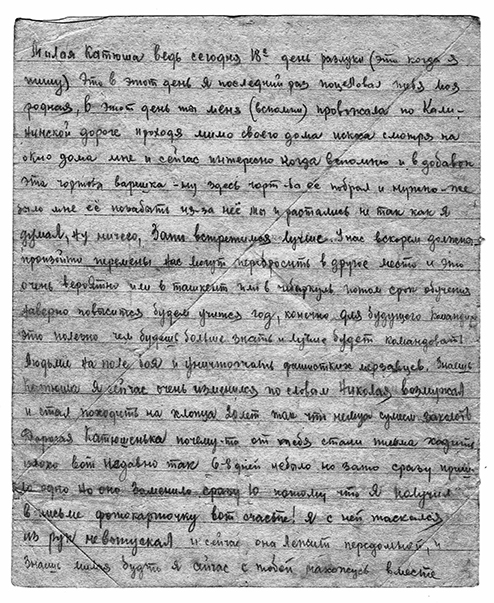 Милая Катюша ведь сегодня 18й день разлуки (это когда я
пишу) Это в этот день я последний раз поцеловал тебя моя
родная, В этот день ты меня (вспомни) провожала по Кали-
нинской дороге проходя мимо своего дома искоса смотря на
окно дома мне и сейчас интересно когда вспомню и в добавок
эта чортова варешка - ну здесь чорт-ва ее побрал и нужно-же
было мне ее позабыть из-за неё мы и расстались не так как я
думал, Ну ничего, Зато встретимся лучше. У нас вскорем должны
произойти перемены нас могут перебросить в другое место и это
очень вероятно или в ташкент или в чебаркуль потом срок обучения
наверно повысится будем учится год, конечно для будущего командира
это полезно чем будешь больше знать и лучше будет командовать
Людьми на поле боя и уничтожать фашистких мерзавцев. Знаешь
Катюша Я сейчас очень изменился по словам Николая возмужал
и стал походить на хлопца 20 лет так что немца сумеем заколоть
Дорогая Катюшенька почему-то от тебя стали письма ходить
плохо вот недавно так 6-8 дней небыло но зато сразу приш-
ло одно но оно заменило сразу 10 потому что Я получил
в письме фотокарточку вот счастье! Я с ней таскался
из рук невыпускал и сейчас она лежит передомной, и
Знаешь милая будто я сейчас с тобой нахожусь вместе